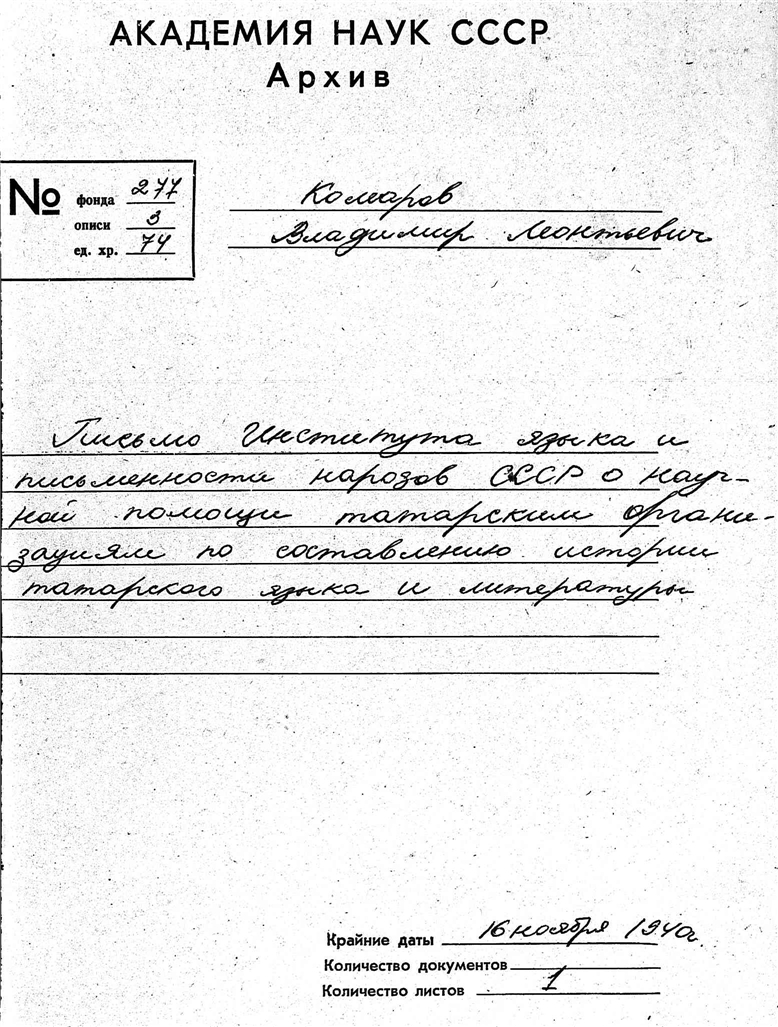 АКАДЕМИЯ НАУК СССР
Архив
№ фонда 277
описи 3
ед. хр. 74
Комаров
Владимир Леонтьевич
Письмо Института языка и
письменности народов СССР о науч-
ной помощи татарским органи-
зациям по составлению истории
татарского языка и литературы
Крайние даты 16 ноября 1940г.
Количество документов
Количество листов 1